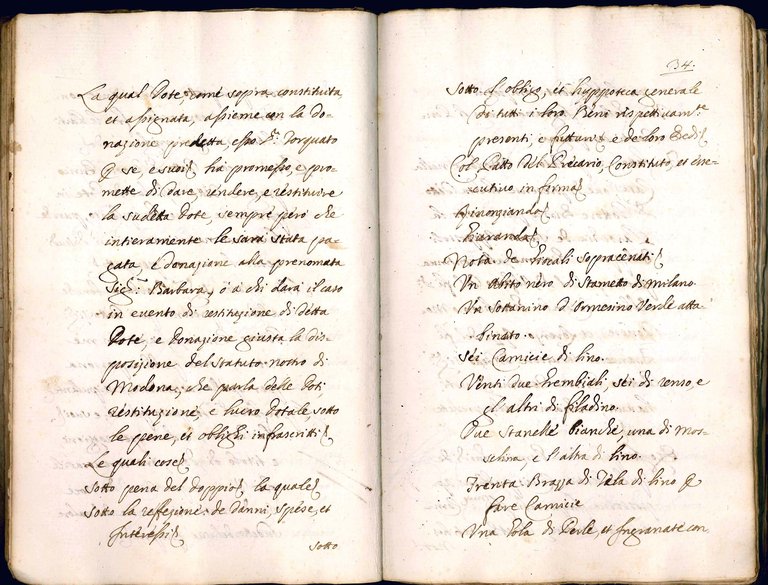 La qual Dote, come sopra constituita,
et assignata, assieme con la do-
nazione predetta, esso Sr. Torquato
se, e suoi, ha promesso, e pro-
mette di dare rendere, e restituire
la sudetta Dote, sempre però che
intieramente le sarà stata pa-
gata, e donazione alla prenomata
Sigra. Barbara, ò à chi darà il caso
in evento di restituzione di detta
Dote, e donazione giusta la dis-
posizione del Statuto nostro di
Modona, che parla delle Doti
restituzione, e lucro dotale sotto
le pene, et oblighi infrascritti
Le quali cose
Sotto pena del doppio la quale
Sotto la refezione de danni, spese, et
Interessi
sotto
34.
Sotto obligo, et hyppoteca generale
di tutti i loro Beni rispettivamte
presenti, e futturi e de loro Eredi
Col Patto del Precario, Constituto, et ese-
cutivo in forma
Nota de sopracenati
Un abito nero di Stametto di Milano.
Un Sottanino d'Ormesino Verde alla
Sei Camicie di lino.
Venti due trembiali, sei di renso, e
gl'altri di filadino.
Due Stanelle bianche, una di Mos-
selina, e l'altra di lino.
Trenta Brazza di Tela di lino
fare Camicie
Una di Perle, et Ingranate con